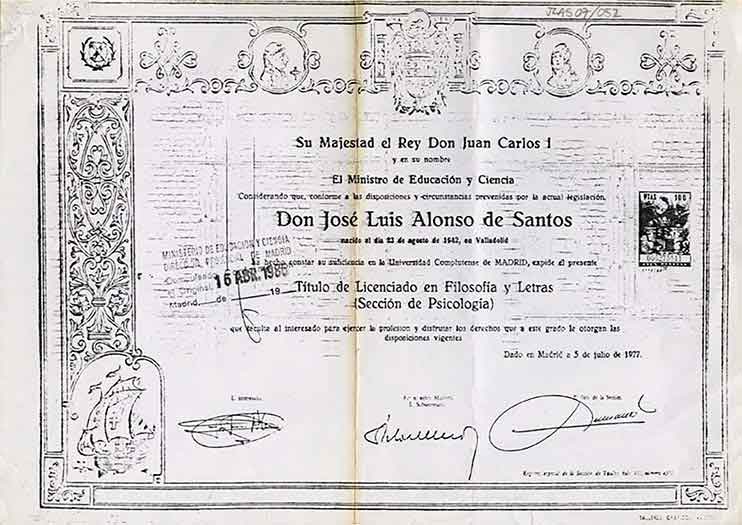 JLAS07/052
Su Majestad el Rey Don Juan Carlos I
y en su nombre
El Ministro de Educación y Ciencia
Considerando que, conforme a las disposiciones y circunstancias prevenidas por la actual legislación,
Don José Luis Alonso de Santos
nacido el día 23 de agosto de 1942, en Valladolid
ha hecho constar su suficiencia en la Universidad Complutense de MADRID, expide el presente
Título de Licenciado en Filosofía y Letras
(Sección de Psicología)
que faculta al interesado para ejercer la profesión y disfrutar los derechos que a este grado le otorgan las
disposiciones vigentes
Dado en Madrid a 5 de julio de 1977.
MINISTERIO DE EDUCACION Y CIENCIA
DIRECCION PROVINCIAL DE MADRID
el original
16 ABR. 1986
Madrid, de de 19
PTAS 100
El interesado,
Por el Ministro,
El Subsecretario,
El Jefe de la Sección,
Registro especial de la Sección de Títulos